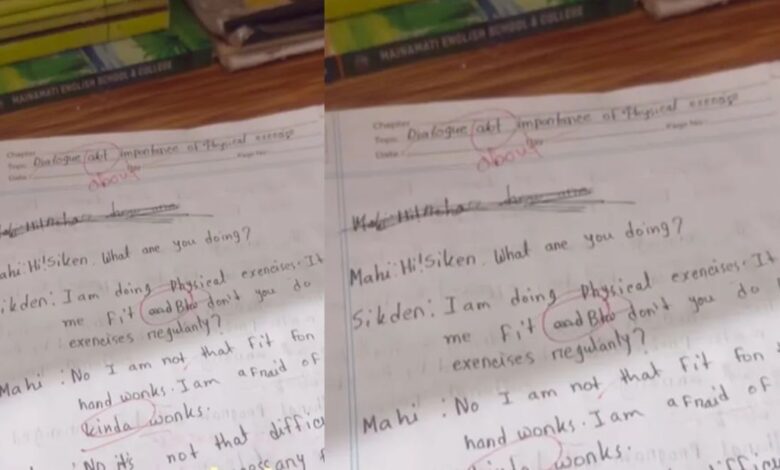 MAINAMATI ENGLISH SCHOOL & COLLEGE
Dialogue abt importance of Physical
about
Mahi: Hi! Siken. What are you doing?
Sikden: I am doing Physical exercises. It
me fit and Btw don't you do
exercises regularly?
Mahi: No I am not that fit for
hand wonks. I am afraid of
kinda wonks.
No it's not that difficu
MAINAMATI ENGLISH SCHOOL & COLLEGE
Topic: Dialogue abt importance of Physical
about
Mahi: Hi! Siken. What are you doing?
Sikden: I am doing Physical exercises. It
me fit and Btw don't you do
exercises regularly?
Mahi: No I am not that fit for
hand wonks. I am afraid of
wonks.